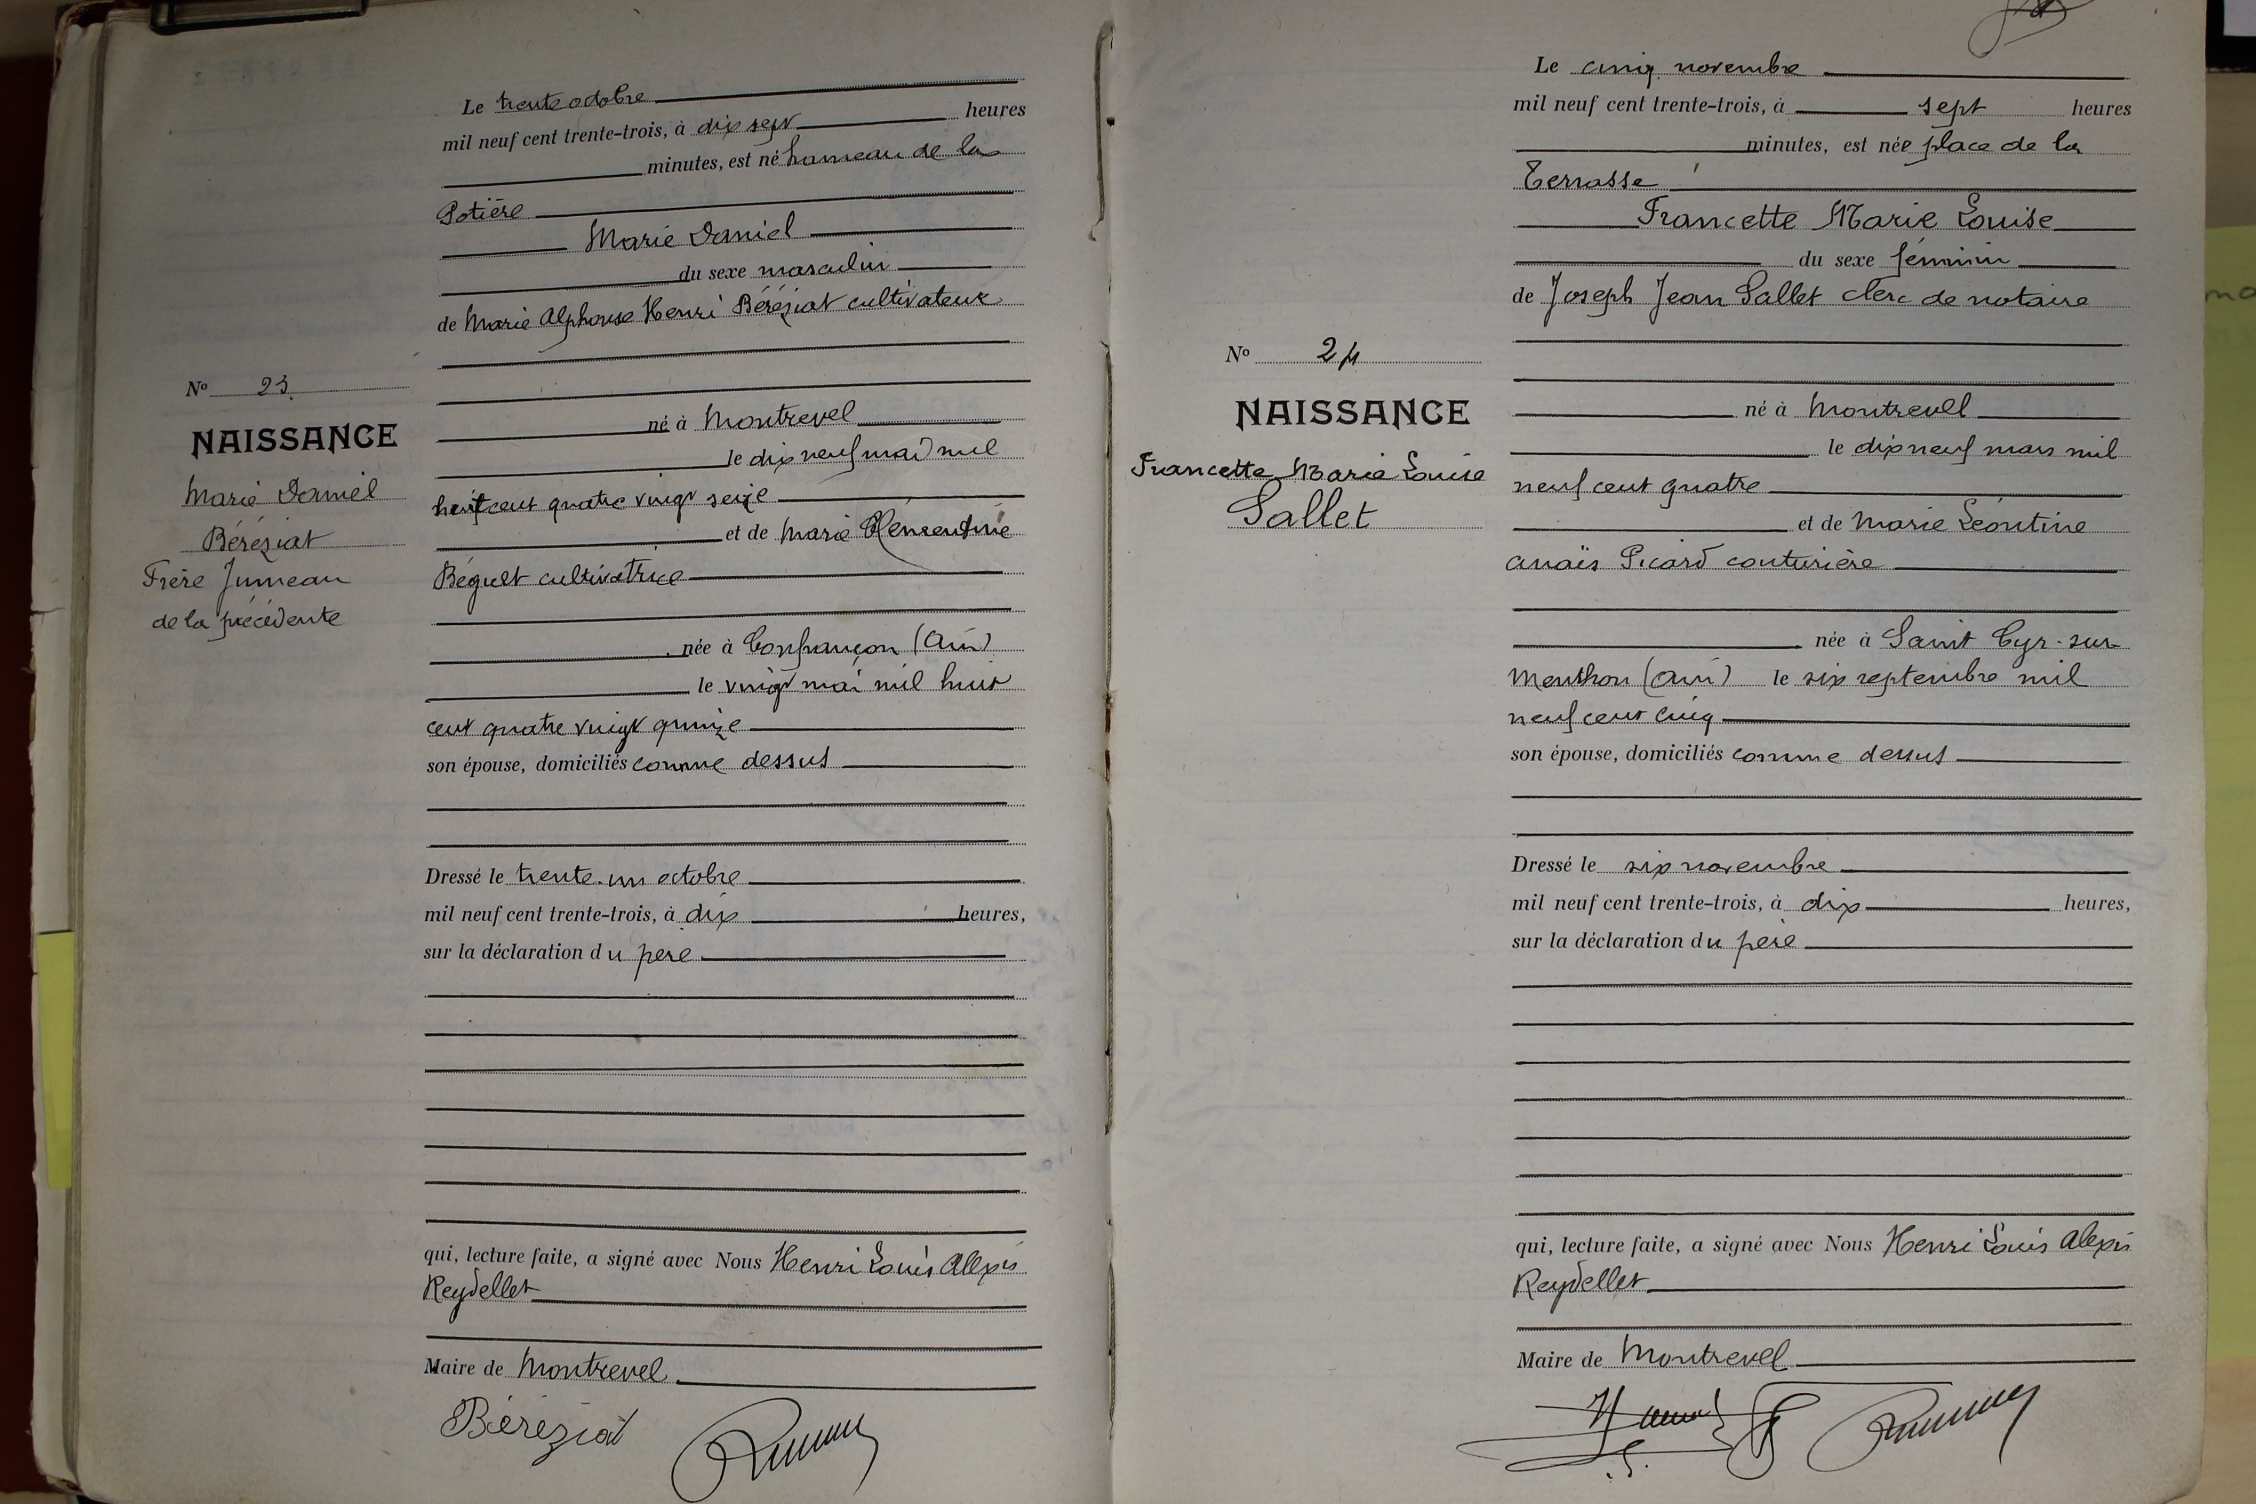 Le trente octobre
mil neuf cent trente-trois, à dix sept heures
minutes, est né hameau de la
Potière
Marie Daniel
du sexe masculin
de Marie Alphonse Henri Béréziat cultivateur
né à Montrevel
le dix neuf mai mil
huit cent quatre vingt seize
et de Marie Clémentine
Béguet cultivatrice
née à Confrançon (Ain)
le vingt mai mil huit
cent quatre vingt quinze
son épouse, domiciliés comme dessus
Dressé le trente-un octobre
mil neuf cent trente-trois, à dix heures,
sur la déclaration du père
qui, lecture faite, a signé avec Nous Henri Louis Alexis
Reydellet
Maire de Montrevel
Béréziat
No 23.
NAISSANCE
Marie Daniel
Béréziat
Frère Jumeau
de la précédente
Le cinq novembre
mil neuf cent trente-trois, à sept heures
minutes, est née place de la
Terrasse
Francette Marie Louise
du sexe féminin
de Joseph Jean Sallet clerc de notaire
né à Montrevel
le dix neuf mars mil
neuf cent quatre
et de Marie Léontine
Anaïs Picard couturière
née à Saint Cyr-sur
Menthon (Ain) le six septembre mil
neuf cent cinq
son épouse, domiciliés comme dessus
Dressé le six novembre
mil neuf cent trente-trois, à dix heures,
sur la déclaration du père
qui, lecture faite, a signé avec Nous Henri Louis Alexis
Reydellet
Maire de Montrevel
No 24
NAISSANCE
Francette Marie Louise
Sallet